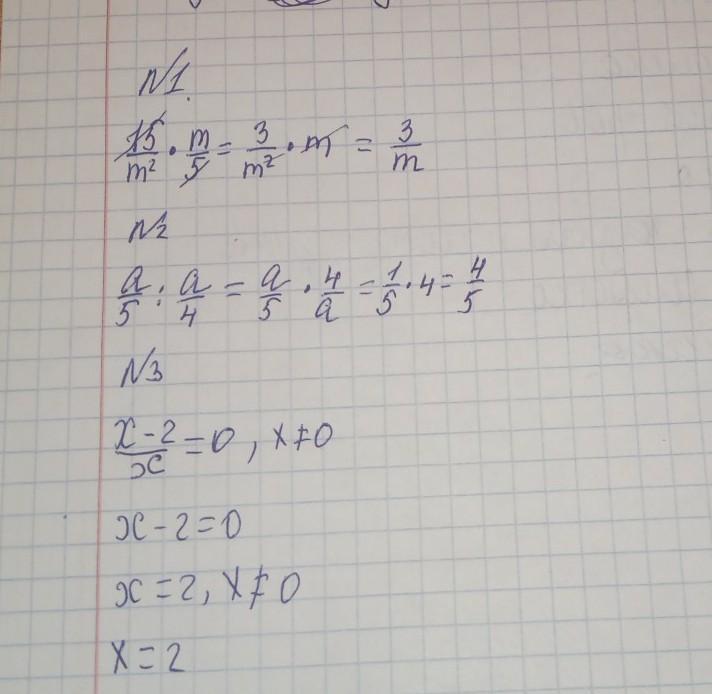 №1.
15/m² · m/5 = 3/m² · m = 3/m
№2
a/5 : a/4 = a/5 · 4/a = 1/5 · 4 = 4/5
№3
x-2/x = 0, x≠0
x-2=0
x=2, x≠0
x=2